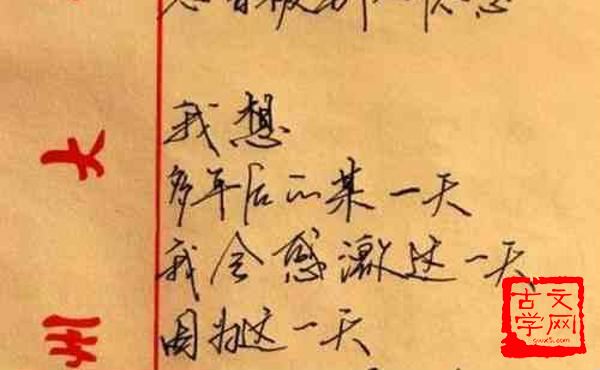 我想
多年后的某一天
我会感激这一天
因为这一天
大
州
古文
学网
gwx5.com